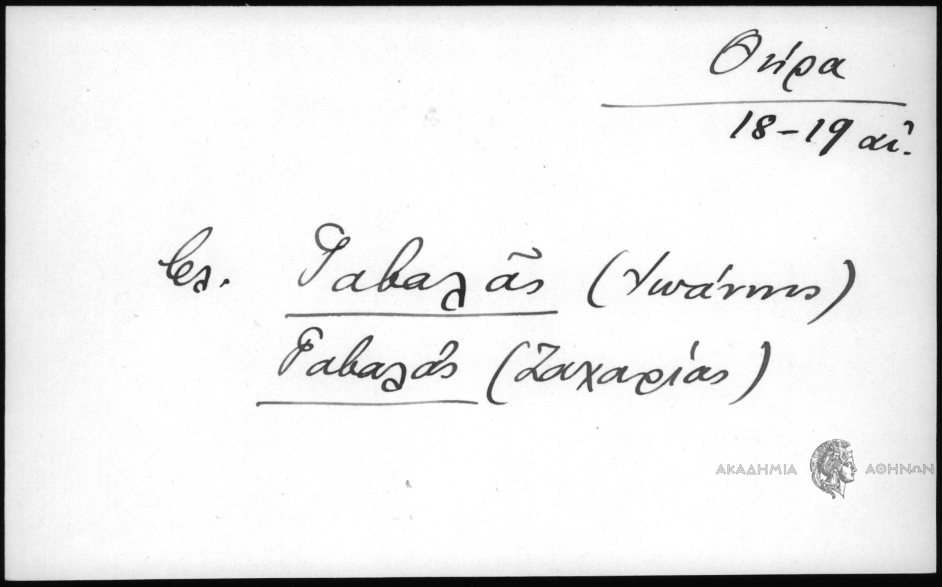 Θήρα
18-19 αἰ.
βλ. Γαβαλᾶς (Ἰωάννης)
Γαβαλᾶς (Ζαχαρίας)
ΑΚΑΔΗΜΙΑ ΑΘΗΝΩΝ